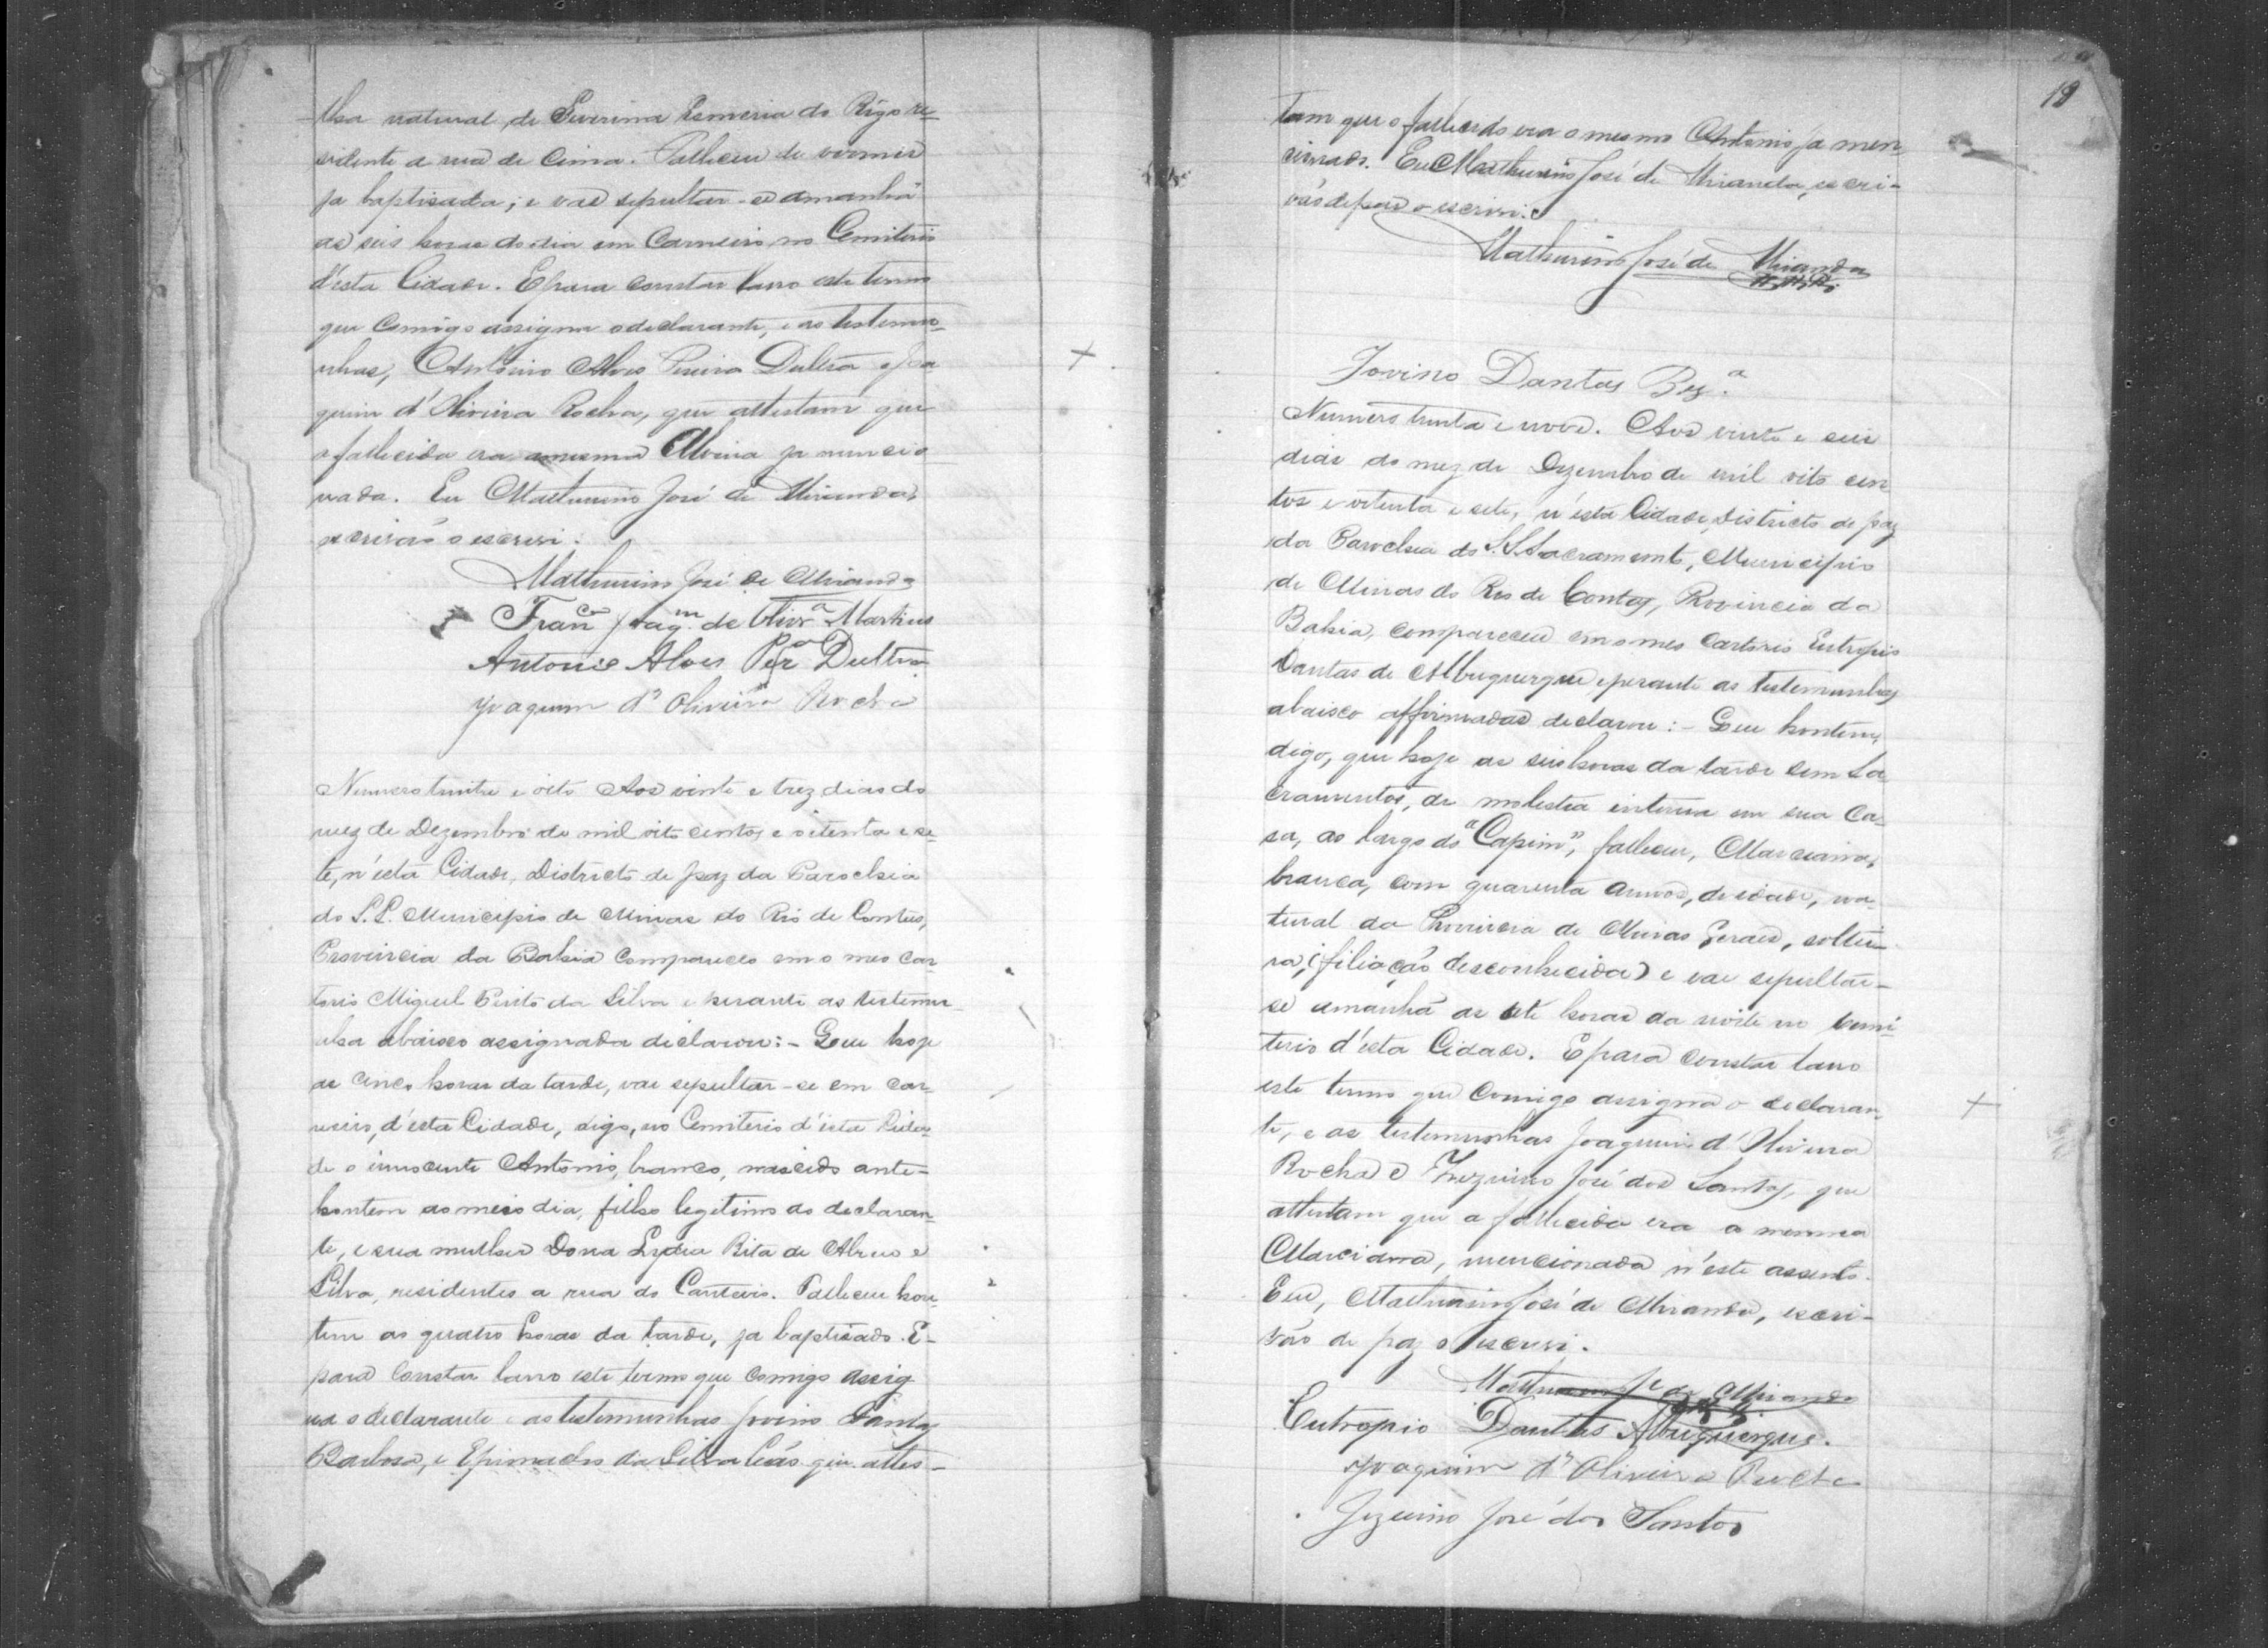 lha natural de Severina Esmeria do Rego re-
sidente a rua de Cima. Falleceu de vermes
ja baptisada; e vae sepultar-se amanhã
as seis horas do dia em Carneiro no Cemiterio
d'esta Cidade. E para constar lavro este termo
que comigo assigna o declarante, e as testemu-
nhas, Antonio Alves Pereira Dultra e Joa
quim d'Oliveira Rocha, que attestam que
a fallecida era a mesma Alvina ja mencio
nada. Eu Mathurino José de Miranda,
escrivão o escrevi.
Mathurino José de Miranda
Franco Joaqm de Olivra Martins
Antonio Alves Pera Dultra
Joaquim d'Oliveira Rocha
Numero trinta e oito Aos vinte e trez dias do
mez de Dezembro de mil oito centos e oitenta e se-
te, n'esta Cidade, Districto de paz da Parochia
do S.S. Municipio de Minas do Rio de Contas,
Provincia da Bahia compareceo em o meo car-
torio Miguel Pinto da Silva e perante as testemu-
nha abaixo assignada declarou:- Que hoje
as cinco horas da tarde, vae sepultar-se em car-
neiro, d'esta Cidade, digo, no Cemiterio d'esta Cida-
de o innocente Antonio, branco, nascido ante-
hontem ao meio dia, filho legitimo do declaran-
te, e sua mulher Dona Lydia Rita de Abreu e
Silva, residentes a rua do Canteiro. Falleceu hon-
tem as quatro horas da tarde, ja baptisado. E-
para constar lavro este termo que comigo assig
na o declarante e as testemunhas Jovino Dantas
Barbosa, e da Silva Leão que attes-
tam que o fallecido era o mesmo Antonio ja men-
cionado. Eu Mathurino José de Miranda, escri-
vão de paz o escrevi.
Mathurino José de Miranda
Jovino Dantas Bz.a
Numero trinta e nove. Aos vinte e seis
dias do mez de Dezembro de mil oito cen
tos e oitenta e sete, n'esta Cidade, Districto de paz
da Parochia do S.S. Sacramento, Municipio
de Minas do Rio de Contas, Provincia da
Bahia, compareceu em o meo cartorio Eutropio
Dantas de Albuquerque, e perante as testemunhas
abaixo affirmadas declarou:- Que hontem,
digo, que hoje as seis horas da tarde sem Sa
cramentos, de molestia interna em sua ca-
sa, ao largo do "Capim", falleceu, Marciana,
branca, com quarenta annos, de idade, na-
tural da Provincia de Minas Geraes, soltei-
ra, (filiação desconhecida) e vae sepultar-
se amanhã as sete horas da noite no cemi
terio d'esta Cidade. E para constar lavro
este termo que comigo assigna o declaran-
te, e as testemunhas Joaquim d'Oliveira
Rocha e Jezuino José dos Santos, que
attestam que a fallecida era a mesma
Marciana, mencionada n'este assento.
Eu, Mathurino José de Miranda, escri-
vão de paz o escrevi.
Mathurino Je de Miranda
Eutropio Dantas Albuquerque.
Joaquim d'Oliveira Rocha
Jezuino José dos Santos